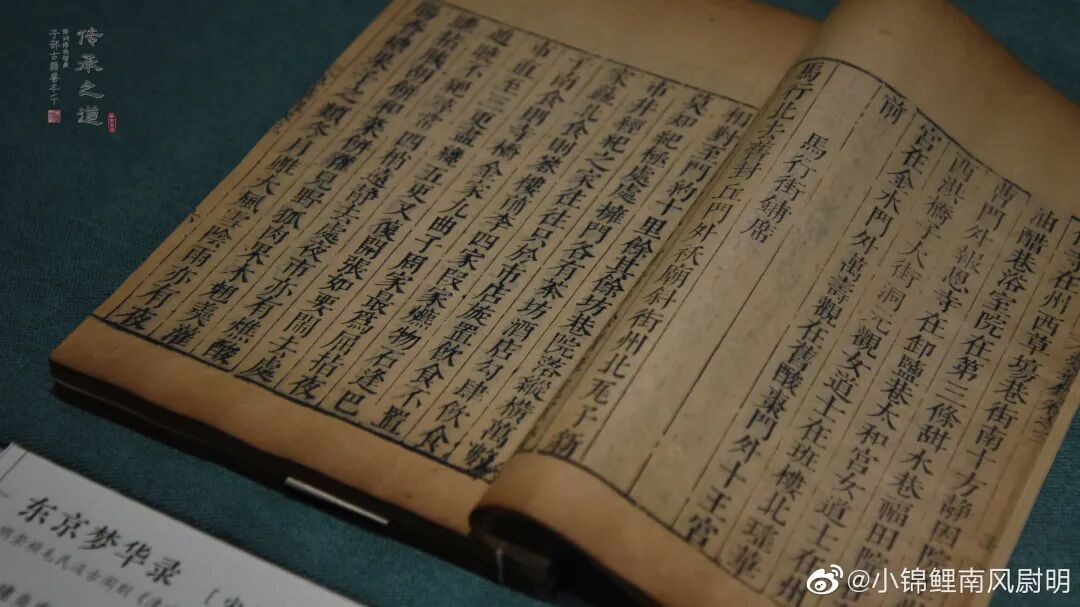 寺在州西草場巷街南十方靜因院
油醋巷浴室院在第三條甜水巷福田院
曹門外報恩寺在卸鹽巷太和宮女道士在州
西洪橋子大街洞元觀女道士在班樓北瑤華
宮在金水門外萬壽觀在舊酸棗門外十王宮
前
馬行街鋪席
馬行北去舊封丘門外祆廟斜街州北瓦子新
相對至門約十里餘其餘坊巷院落縱橫萬數
莫知紀極處處擁門各有茶坊酒店勾肆飲食
市井經紀之家往往只於市店旋置飲食不置
家蔬北食則礬樓前李四家段家爊物石逢巴
子南食則寺橋金家九曲子周家最爲屈指夜
市直至三更盡纔五更又復開張如要鬧去處
通曉不絕尋常四梢遠靜去處夜市亦有燋酸
胡餅和菜餅獾兒野狐肉果木翹羹灌
香糖果子之類冬月雖大風雪陰雨亦有夜
传承之道
东京梦华录
@小锦鲤南风尉明